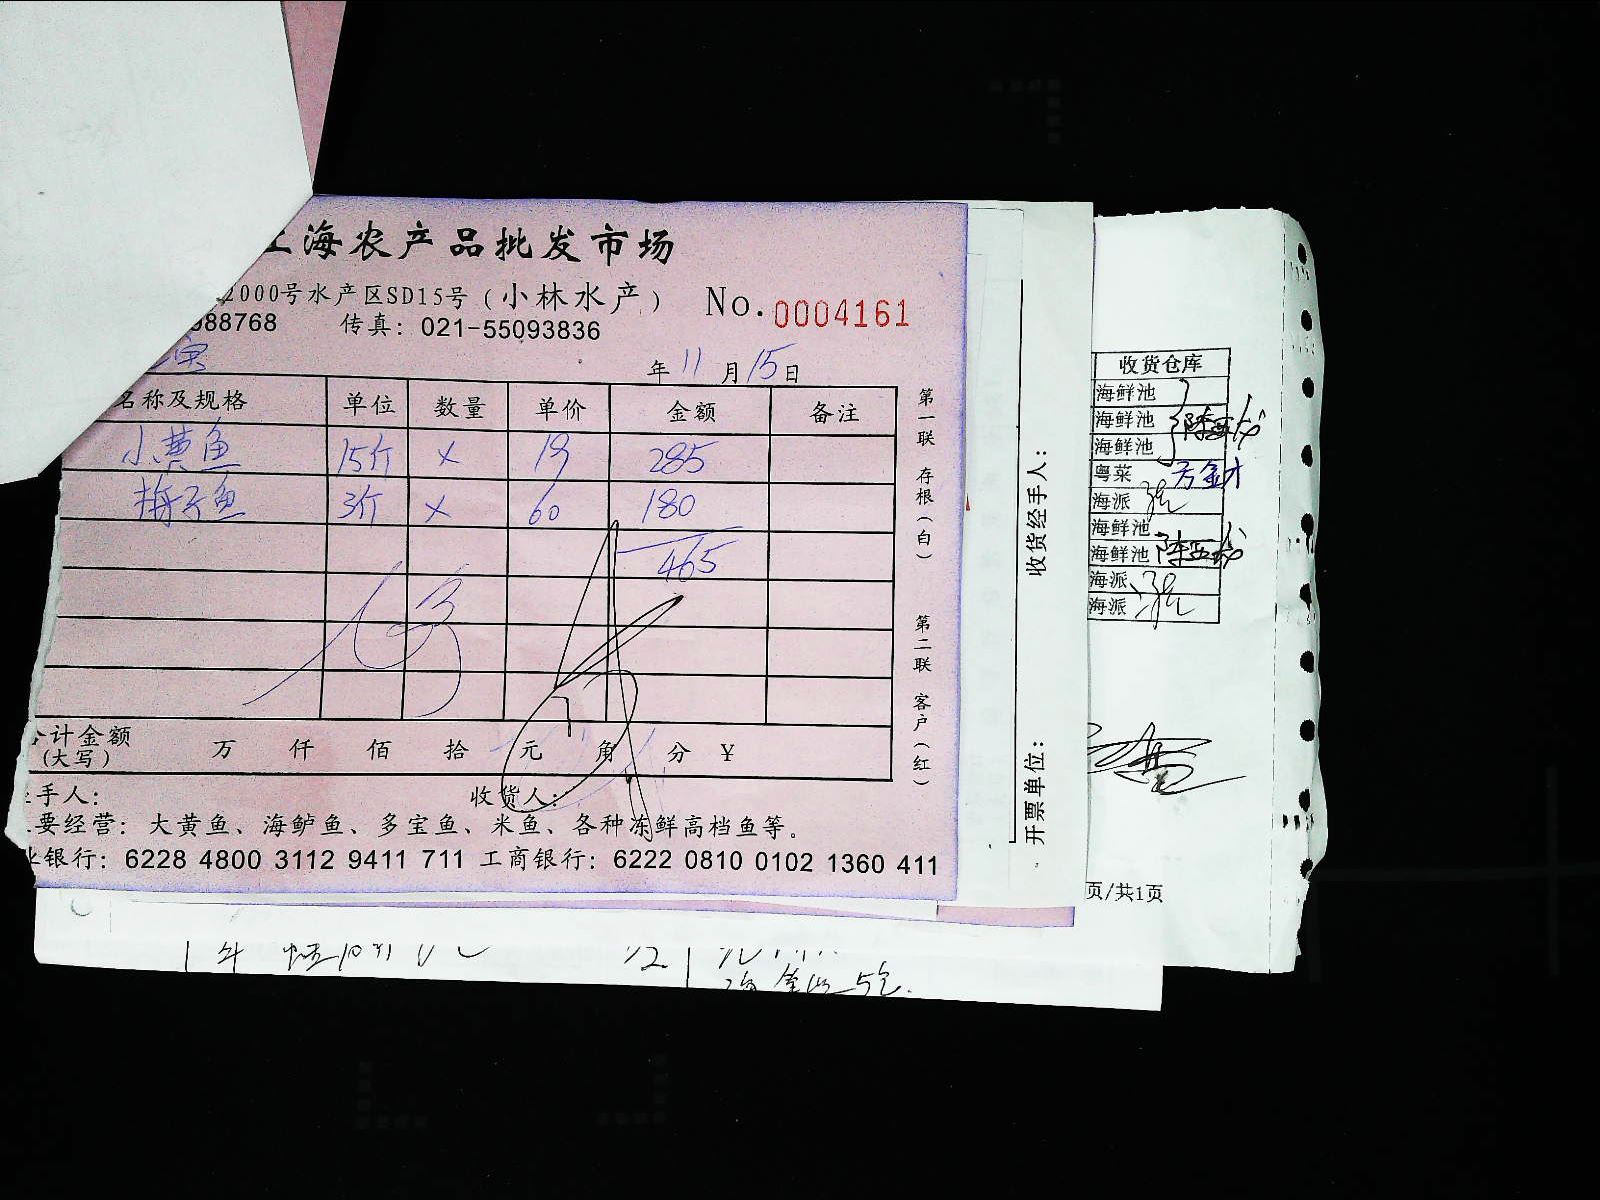 上海农产品批发市场
2000号水产区SD15号（小林水产） No.0004161
988768 传真：021-55093836
年 11 月 15 日
名称及规格 单位 数量 单价 金额 备注
小黄鱼 15斤 × 19 285
梅子鱼 3斤 × 60 180
465
合计金额（大写） 万 仟 佰 拾 元 角 分 ¥
手人： 收货人：
要经营：大黄鱼、海鲈鱼、多宝鱼、米鱼、各种冻鲜高档鱼等。
业银行：6228 4800 3112 9411 711 工商银行：6222 0810 0102 1360 411
第一联 存根（白）
第二联 客户（红）
收货经手人：
开票单位：
收货仓库
海鲜池
海鲜池
海鲜池
粤菜
海派
海鲜池
海鲜池
海派
海派
页/共1页